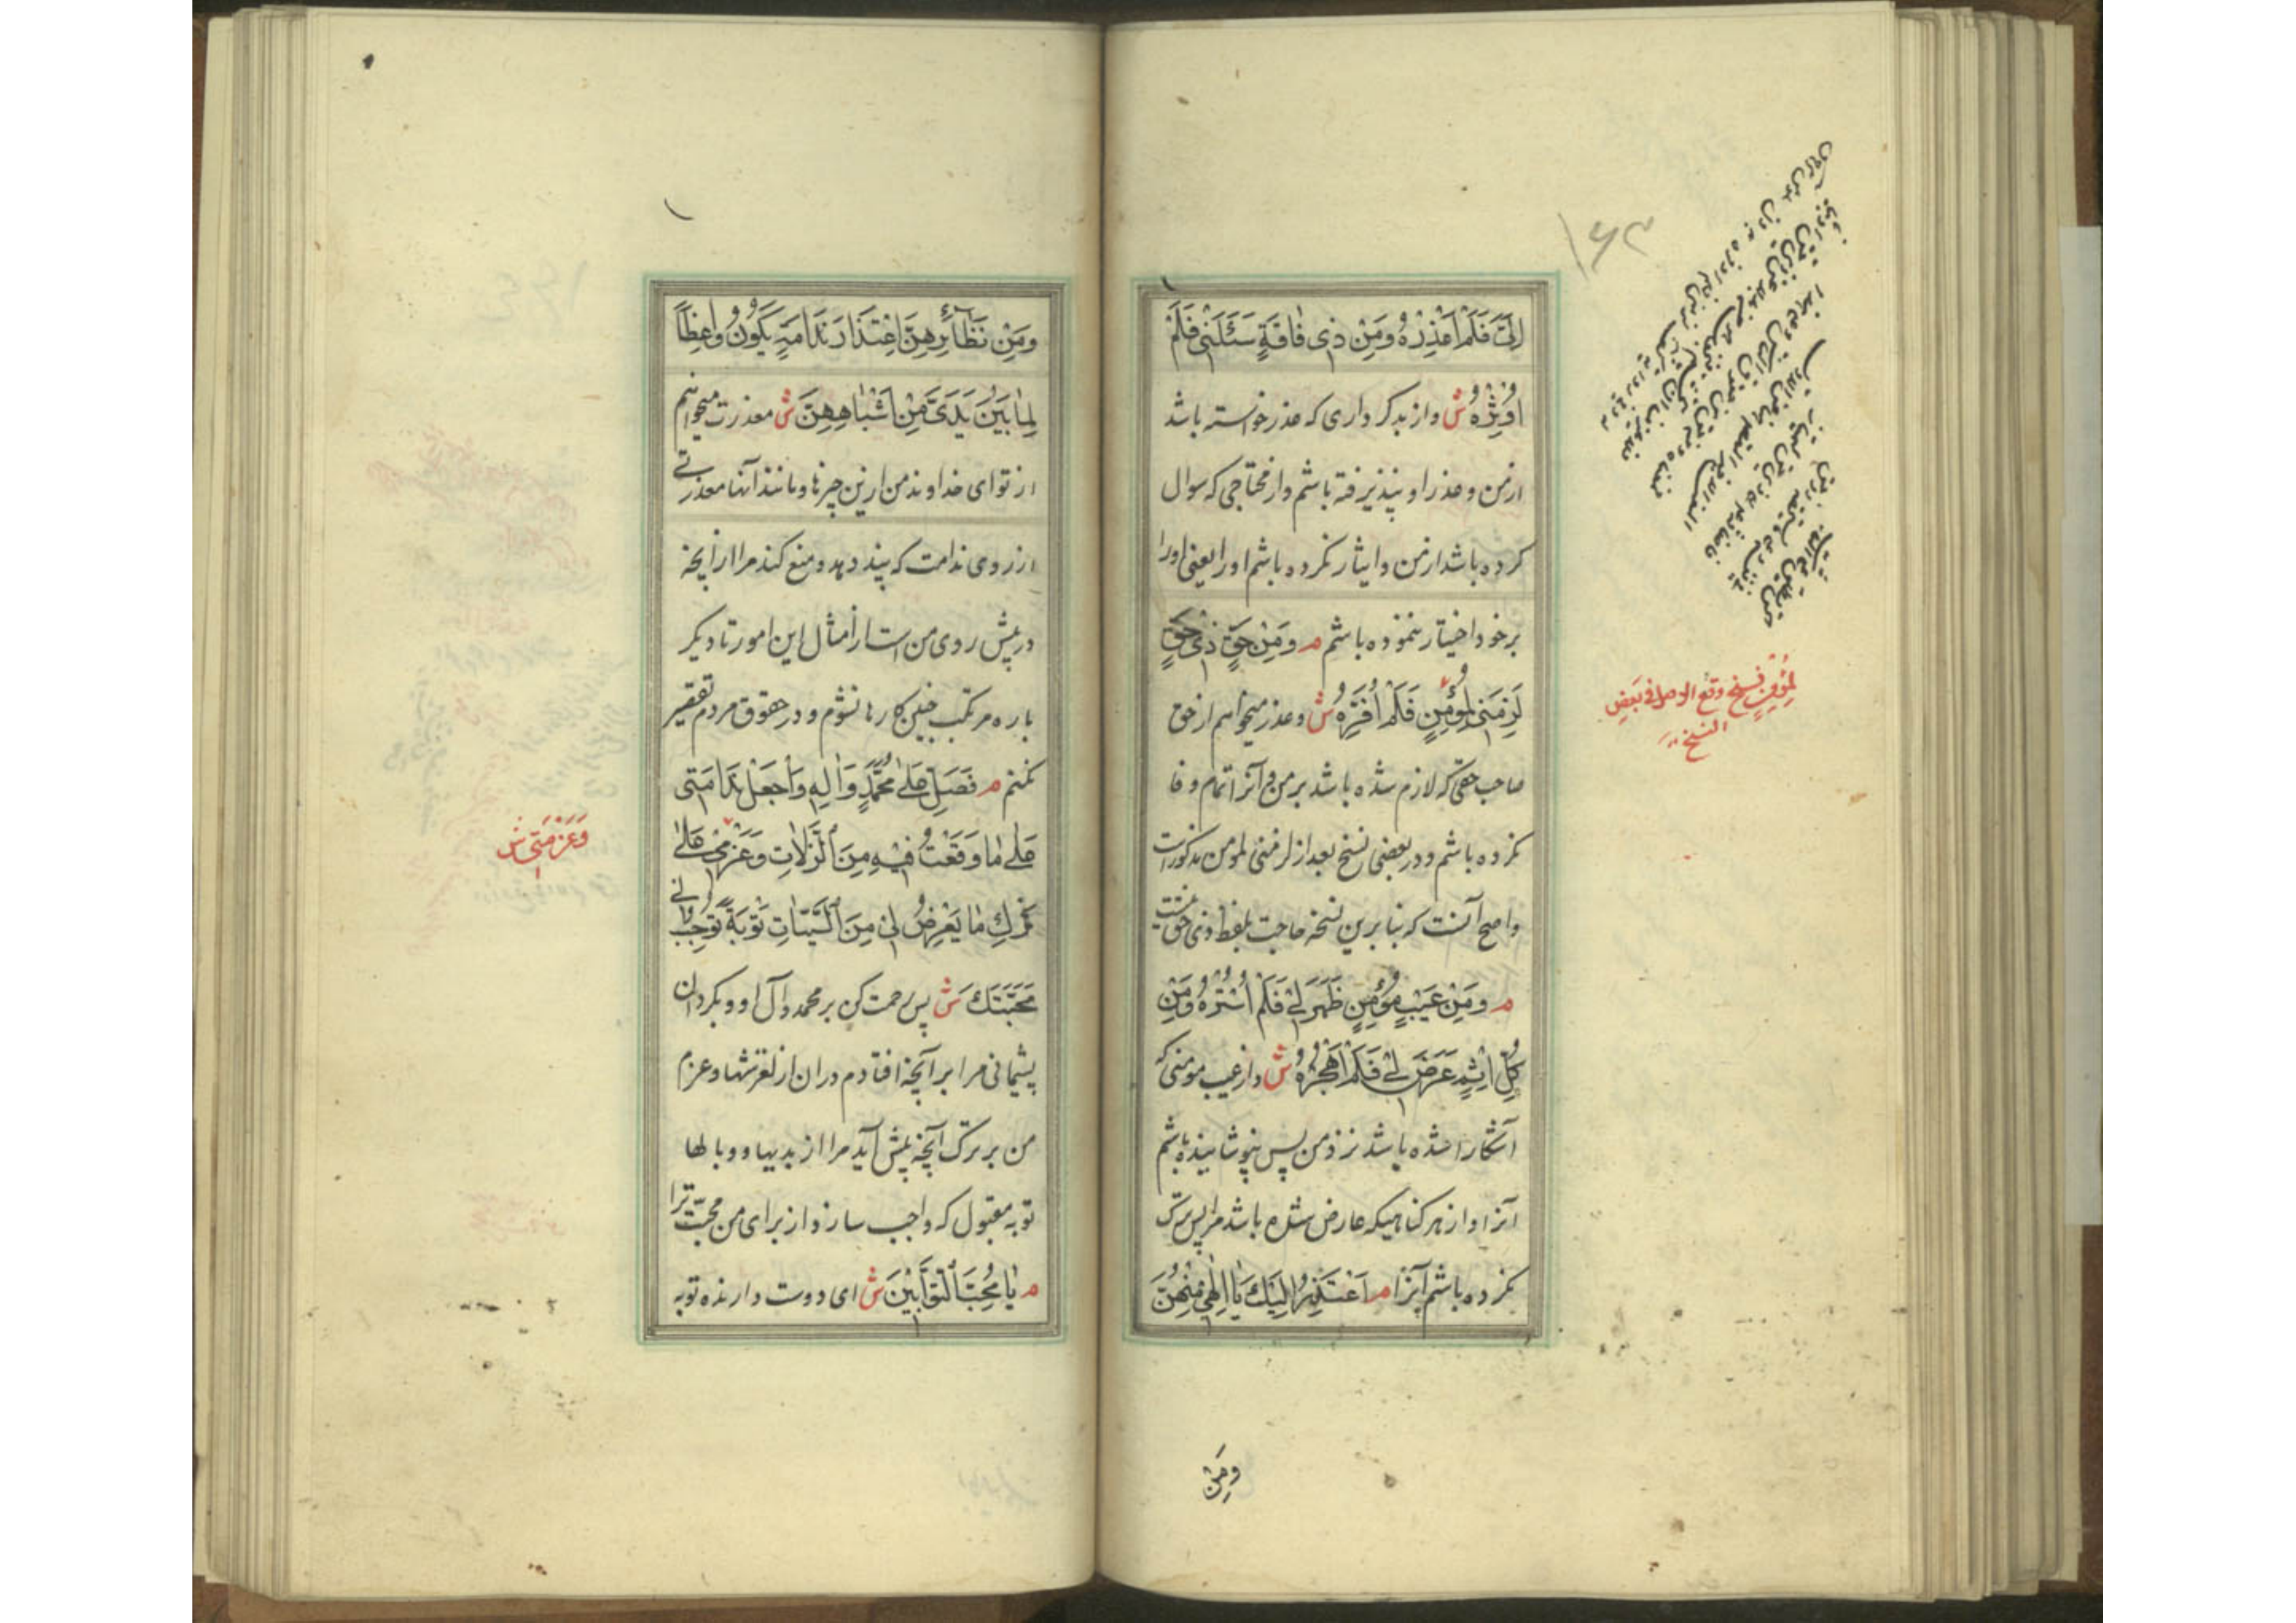 ۱۶۳
اِلَیَّ فَلَمْ اَعْذِرْهُ وَمِنْ ذِی فٰاقَةٍ سَئَلَنِی فَلَمْ
اُوثِرْهُ ش واز بدکرداری که عذر خواسته باشد
ازمن وعذر او نپذیرفته باشم واز محتاجی که سوال
کرده باشد ازمن وایثار نکرده باشم اورا یعنی اورا
برخود اختیار ننموده باشم م وَمِنْ حَقِّ ذِی حَقٍّ
لَزِمَنِی لِمُؤْمِنٍ فَلَمْ اُوَفِّرْهُ ش وعذر میخواهم از حق
صاحب حقی که لازم شده باشد برمن وآنرا تمام وفا
نکرده باشم ودر بعضی نسخ بعد از لزمنی لمومن مذکور است
واضح آنست که بنا برین نسخه حاجت بلفظ ذی حق نیست
م وَمِنْ عَیْبِ مُؤْمِنٍ ظَهَرَ لِی فَلَمْ اَسْتُرْهُ وَمِنْ
کُلِّ اِثْمٍ عَرَضَ لِی فَلَمْ اَهْجُرْهُ ش واز عیب مومنی که
آشکارا شده باشد نزد من پس نپوشانیده باشم
آنرا واز هر کناهیکه عارض شده باشد مرا پس ترک
نکرده باشم آنرا م اَعْتَذِرُ اِلَیْکَ یٰا اِلٰهِی مِنْهُنَّ
وَمِنْ
لِمُؤْمِنٍ
فی بعض
النسخ
وَمِنْ نَظٰائِرِهِنَّ اعْتِذَارَ نَدٰامَةٍ یَکُونُ وٰاعِظاً
لِمٰا بَیْنَ یَدَیَّ مِنْ اَشْبٰاهِهِنَّ ش معذرت میخواهم
از تو ای خداوند من ازین چیزها ومانند آنها معذرتے
از روی ندامت که پند دهد ومنع کند مرا از آنچه
در پیش روی من است از امثال این امور تا دیکر
باره مرتکب چنین کارها نشوم ودر حقوق مردم تقصیر
نکنم م فَصَلِّ عَلٰی مُحَمَّدٍ وَاٰلِهِ وَاجْعَلْ نَدٰامَتِی
عَلٰی مٰا وَقَعْتُ فِیهِ مِنَ الزَّلاّٰتِ وَعَزْمِی عَلٰی
تَرْکِ مٰا یَعْرِضُ لِی مِنَ السَّیِّئٰاتِ تَوْبَةً تُوجِبُ لِی
مَحَبَّتَکَ ش پس رحمت کن بر محمد وآل او وبکردان
پشیمانی مرا بر آنچه افتادم دران از لغزشها وعزم
من بر ترک آنچه پیش آید مرا از بدیها ووبالها
توبه مقبول که واجب سازد از برای من محبّت ترا
م یٰا مُحِبَّ التَّوّٰابِینَ ش ای دوست دارنده توبه
وَعَزْمَتِی ش